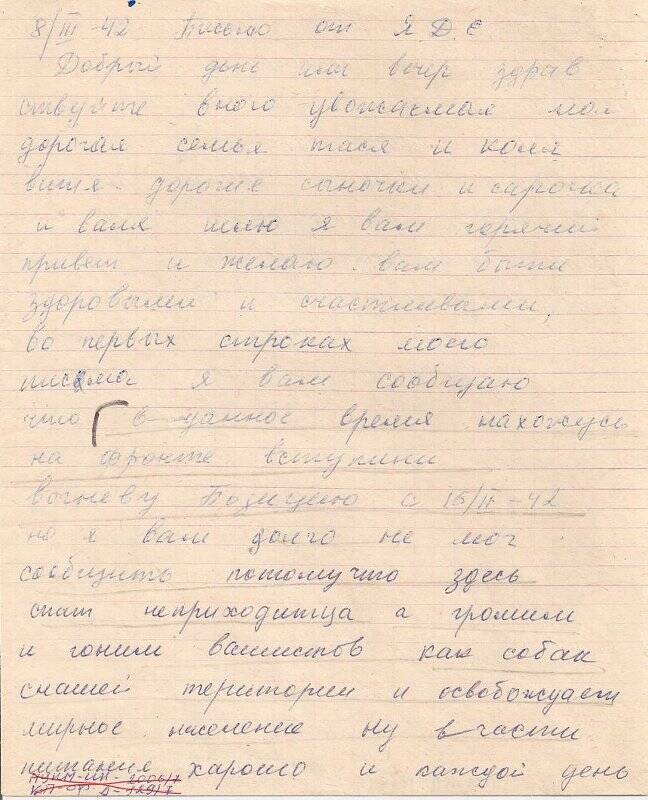 8/III-42 Письмо от Я Д Е
Добрый день или вечер здрав
ствуйте много уважаемая моя
дорогая семья тася и коля
витя дорогие сыночки и сарочка
и валя шлю я вам горячий
привет и желаю вам быть
здоровыми и счастливами,
во первых строках моего
письма я вам сообщаю
что в данное время нахожусь
на фронте вступили
вогневу Позицею с 15/II-42
но я вам долго не мог
сообщить потомучто здесь
спат неприходитца а громим
и гоним вашистов как собак
снашей територии и освобождаем
мирное население ну в части
питания харошо и каждой день